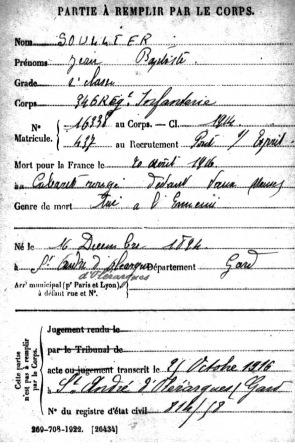 PARTIE À REMPLIR PAR LE CORPS.
Nom SOULLIER
Prénoms Jean Baptiste
Grade 2e classe
Corps 346 Rég. Infanterie
N° Matricule. 16238 au Corps. — Cl. 1914
437 au Recrutement Pont S/ Esprit
Mort pour la France le 20 août 1916
au devant Vaux Meuse
Genre de mort Tué à l'Ennemi
Né le 16 Décembre 1894
à St André d'Olérargues Département Gard
d'Olérargues
Arrt municipal (pr Paris et Lyon) à
à défaut rue et N°.
Cette partie n'est pas à remplir par le Corps.
Jugement rendu le
par le Tribunal de
acte ou jugement transcrit le Octobre 1916
à St André d'Olérargues (Gard
N° du registre d'état civil 814/
269-708-1922. [26434]